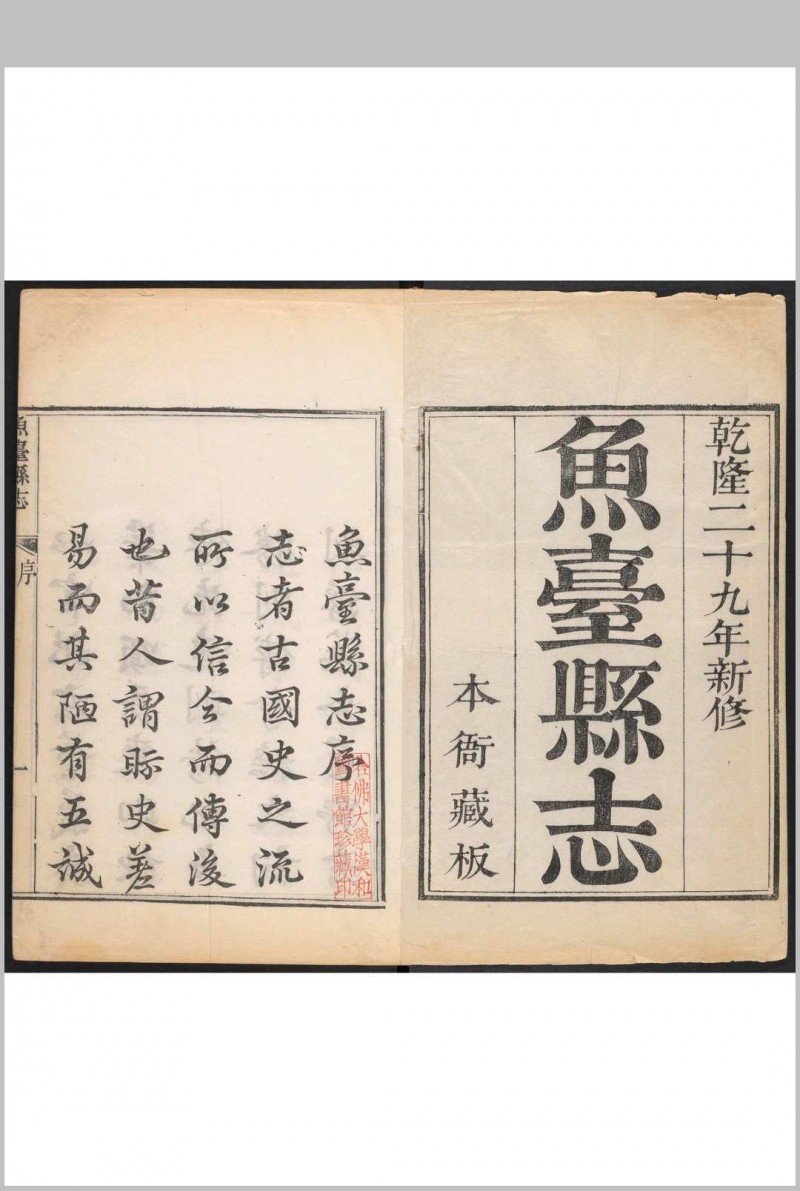 乾隆二十九年新修
魚臺縣志
本衙藏板
魚臺縣志序
志者古國史之流
所以信今而傳後
也昔人謂眡史差
易而其陋有五誠
哈佛大學漢和
圖書館珍藏印
魚臺縣志
序
一